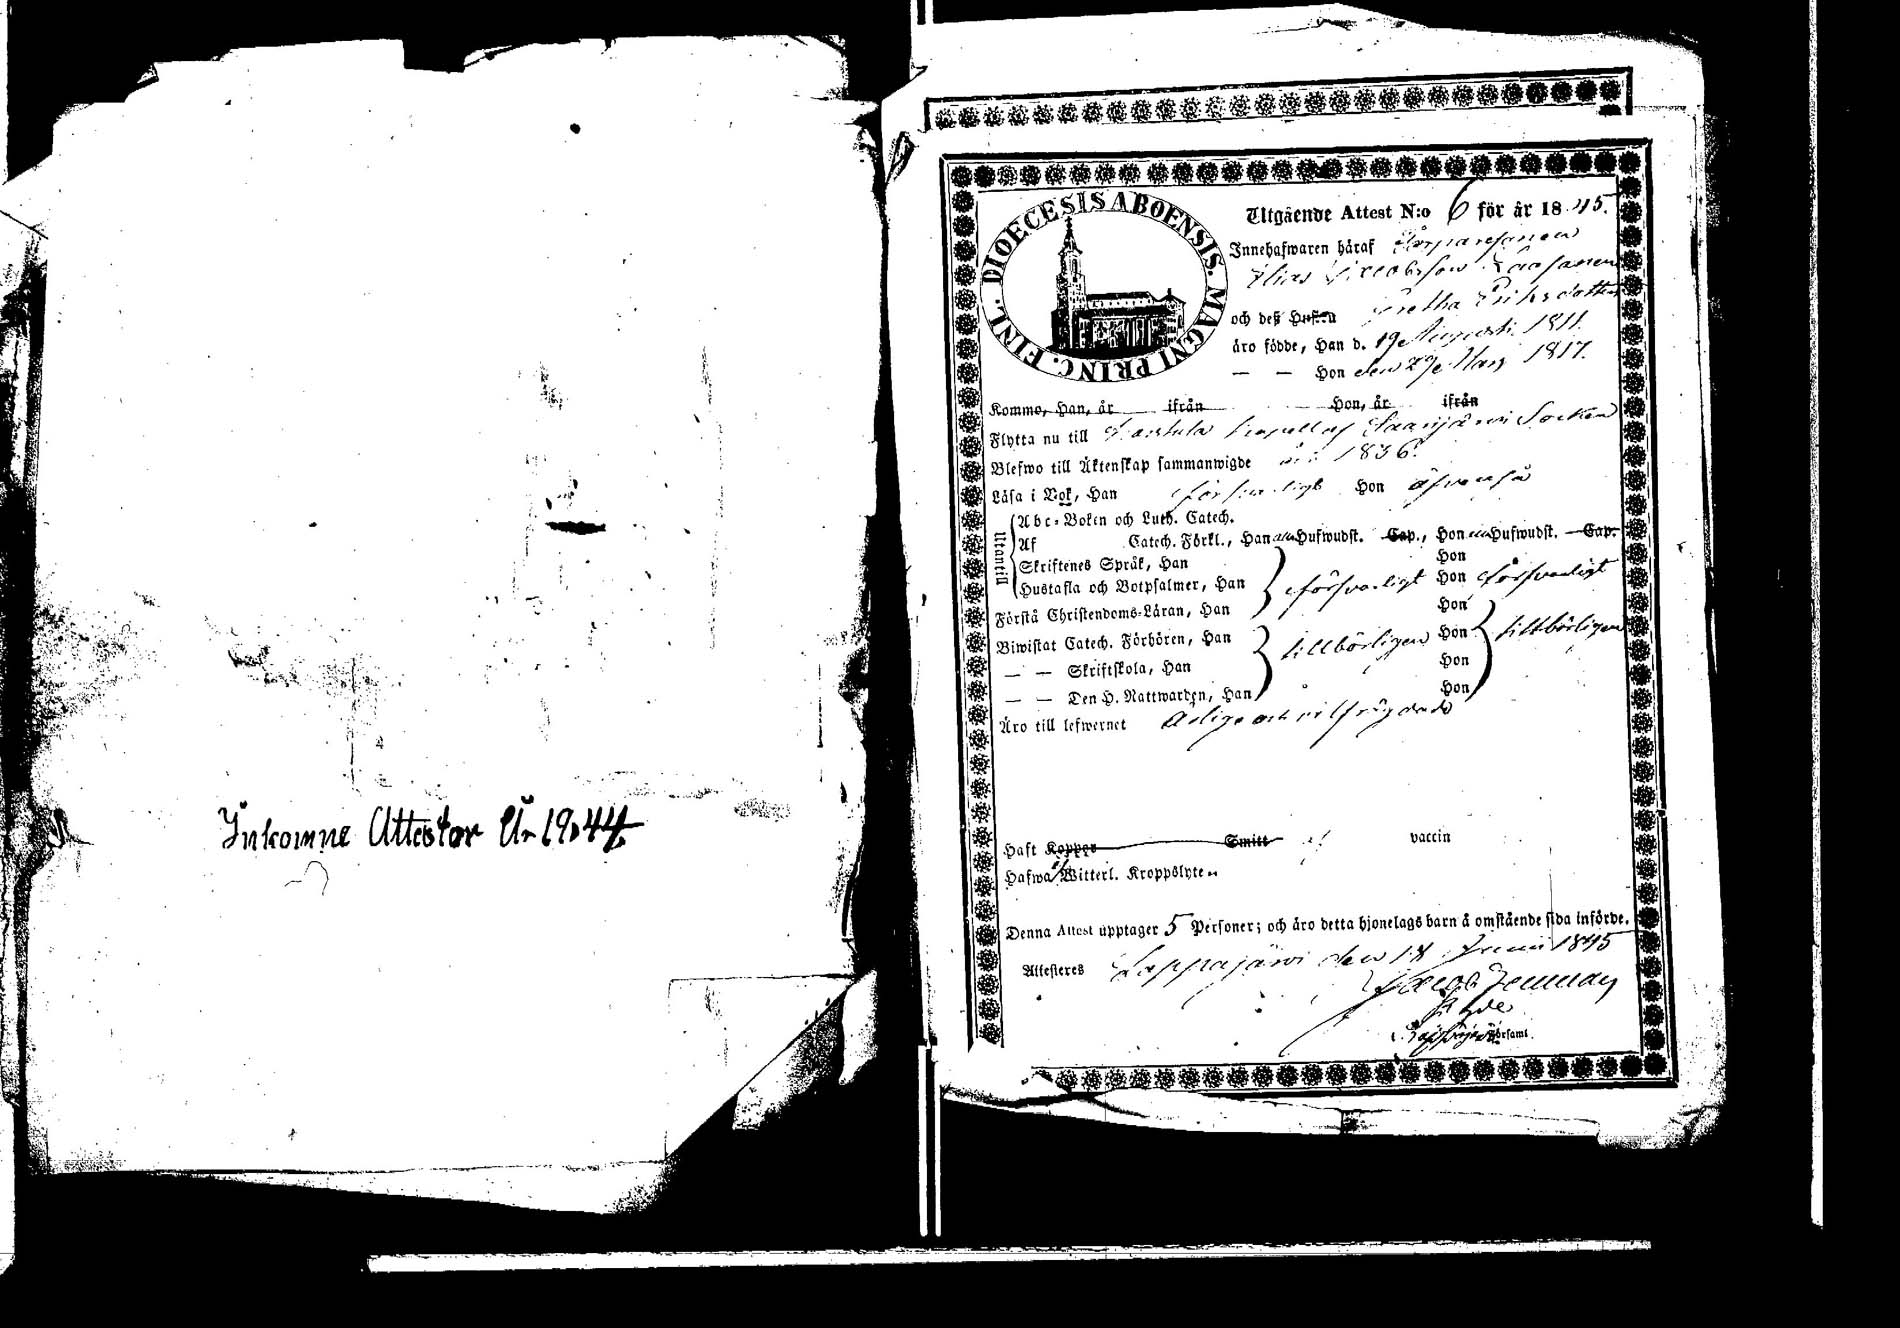 Inkomne Attester År 1844
DIOECESIS ABOENSIS. MAGNI PRINC. FINL.
Utgående Attest N:o 6 för år 1845.
Innehafwaren häraf
Elias Jacobsson
och deß Hustru Gretha Eriksdotter
äro födde, Han d. 19 Augusti 1811.
— — Hon den 29 Mars 1817.
Kommo, Han, år ifrån Hon, år ifrån
Flytta nu till Karstula Capell af Saarijärvi Socken
Blefwo till Äktenskap sammanwigde år 1836.
Läsa i Bok, Han försvarligt Hon äfvenså
Utantill
Abc-Boken och Luth. Catech.
Af Catech. Förkl., Han Hufwudst. Cap., Hon Hufwudst. Cap.
Skriftenes Språk, Han Hon
Hustafla och Botpsalmer, Han försvarligt Hon försvarligt
Förstå Christendoms-Läran, Han Hon
Biwistat Catech. Förhören, Han tillbörligen Hon tillbörligen
— — Skriftskola, Han Hon
— — Den H. Nattwarden, Han Hon
Äro till lefwernet ärliga och välfrägdade
Haft Koppor Smitt vaccin
Hafwa Witterl. Kroppslyte
Denna Attest upptager 5 Personer; och äro detta hjonelags barn å omstående sida införde.
Attesteres Lappajärvi den 18 Junii 1845
Jacob
Församl.